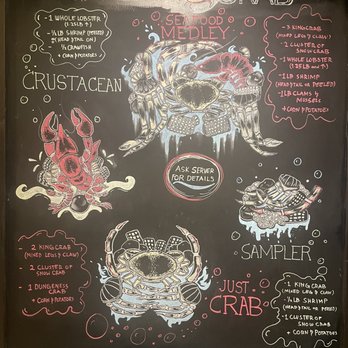 - 1 WHOLE LOBSTER
- ½ LB SHRIMP
HEAD & TAIL ON
CRAWFISH
+ CORN & POTATOES
SEAFOOD
MEDLEY
KING CRAB
(MIXED LEGS & CLAW)
- 2 CLUSTER OF
SNOW CRAB
- 1 WHOLE LOBSTER
- 1LB SHRIMP
(HEAD & TAIL OR PEELED)
- 1LB CLAMS &
MUSSELS
+ CORN & POTATOES
CRUSTACEAN
ASK SERVER
FOR DETAILS
SAMPLER
2 KING CRAB
(MIXED LEGS & CLAW)
2 CLUSTER OF
SNOW CRAB
1 DUNGENESS
CRAB
+ CORN & POTATOES
JUST
CRAB
- 1 KING CRAB
(MIXED LEG & CLAW)
- ½ LB SHRIMP
(HEAD & TAIL OR PEELED)
- 1 CLUSTER OF
SNOW CRAB
+ CORN & POTATOES